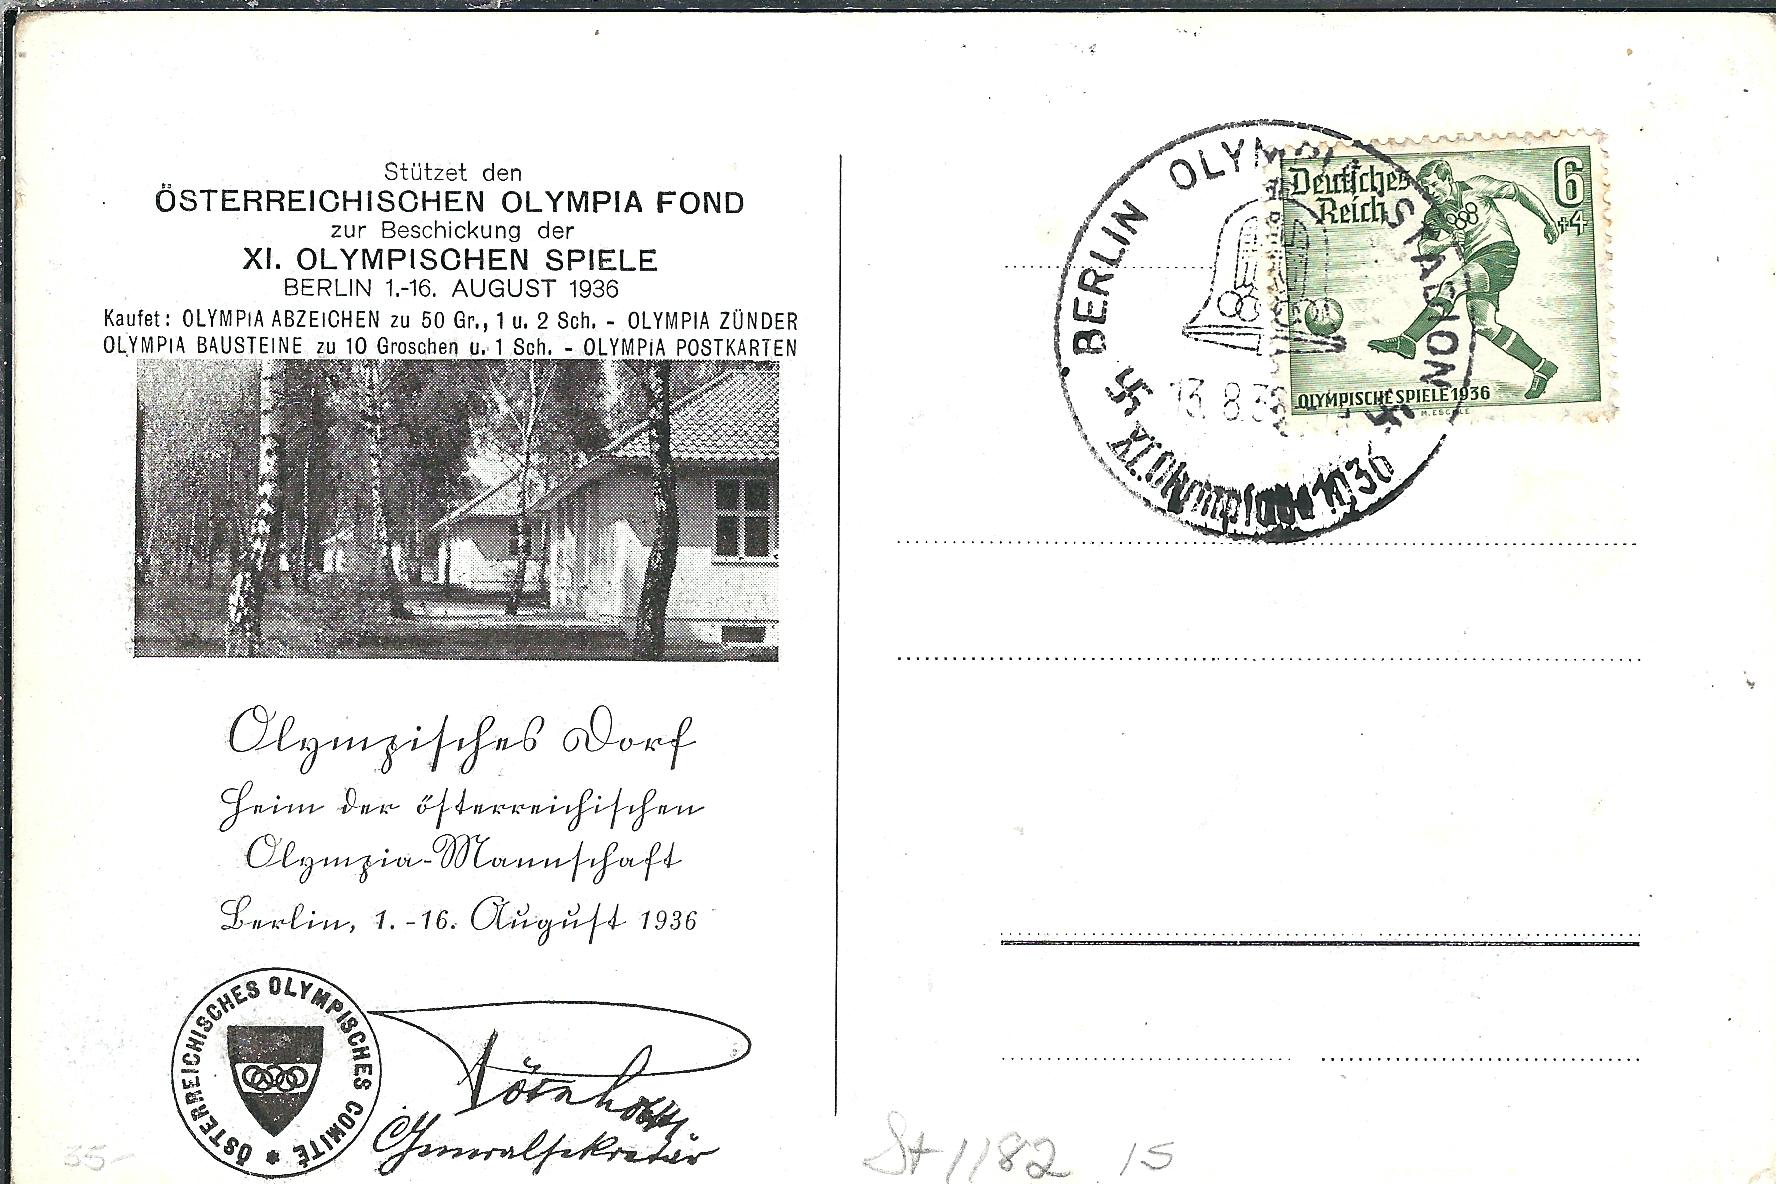 Stützet den
ÖSTERREICHISCHEN OLYMPIA FOND
zur Beschickung der
XI. OLYMPISCHEN SPIELE
BERLIN 1.-16. AUGUST 1936
Kaufet: OLYMPIA ABZEICHEN zu 50 Gr., 1 u. 2 Sch. - OLYMPIA ZÜNDER
OLYMPIA BAUSTEINE zu 10 Groschen u. 1 Sch. - OLYMPIA POSTKARTEN
Olympisches Dorf
Heim der österreichischen
Olympia-Mannschaft
Berlin, 1.-16. August 1936
ÖSTERREICHISCHES OLYMPISCHES COMITÉ
Generalsekretär
35-
BERLIN OLYMPIA-STADION
13.8.36
XI. Olympiade 1936
Deutsches
Reich
6
+4
OLYMPISCHE SPIELE 1936
St 1182 15